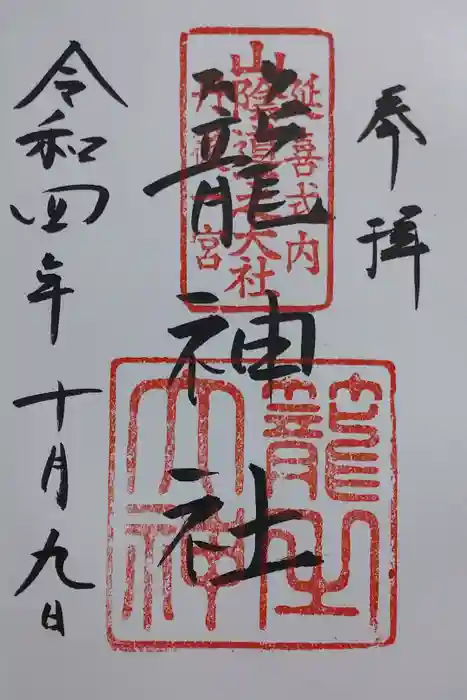 奉拝
籠神社
延喜式内
山陰道一大社
丹後一宮
籠之大神
令和四年十月九日